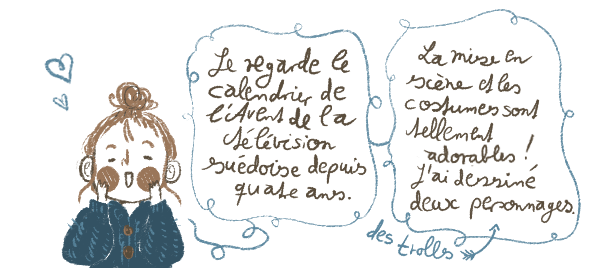 Je regarde le
calendrier de
l'Avent de la
télévision
suédoise depuis
quatre ans.
La mise en
scène et les
costumes sont
tellement
adorables !
J'ai dessiné
deux personnages.
des trolls